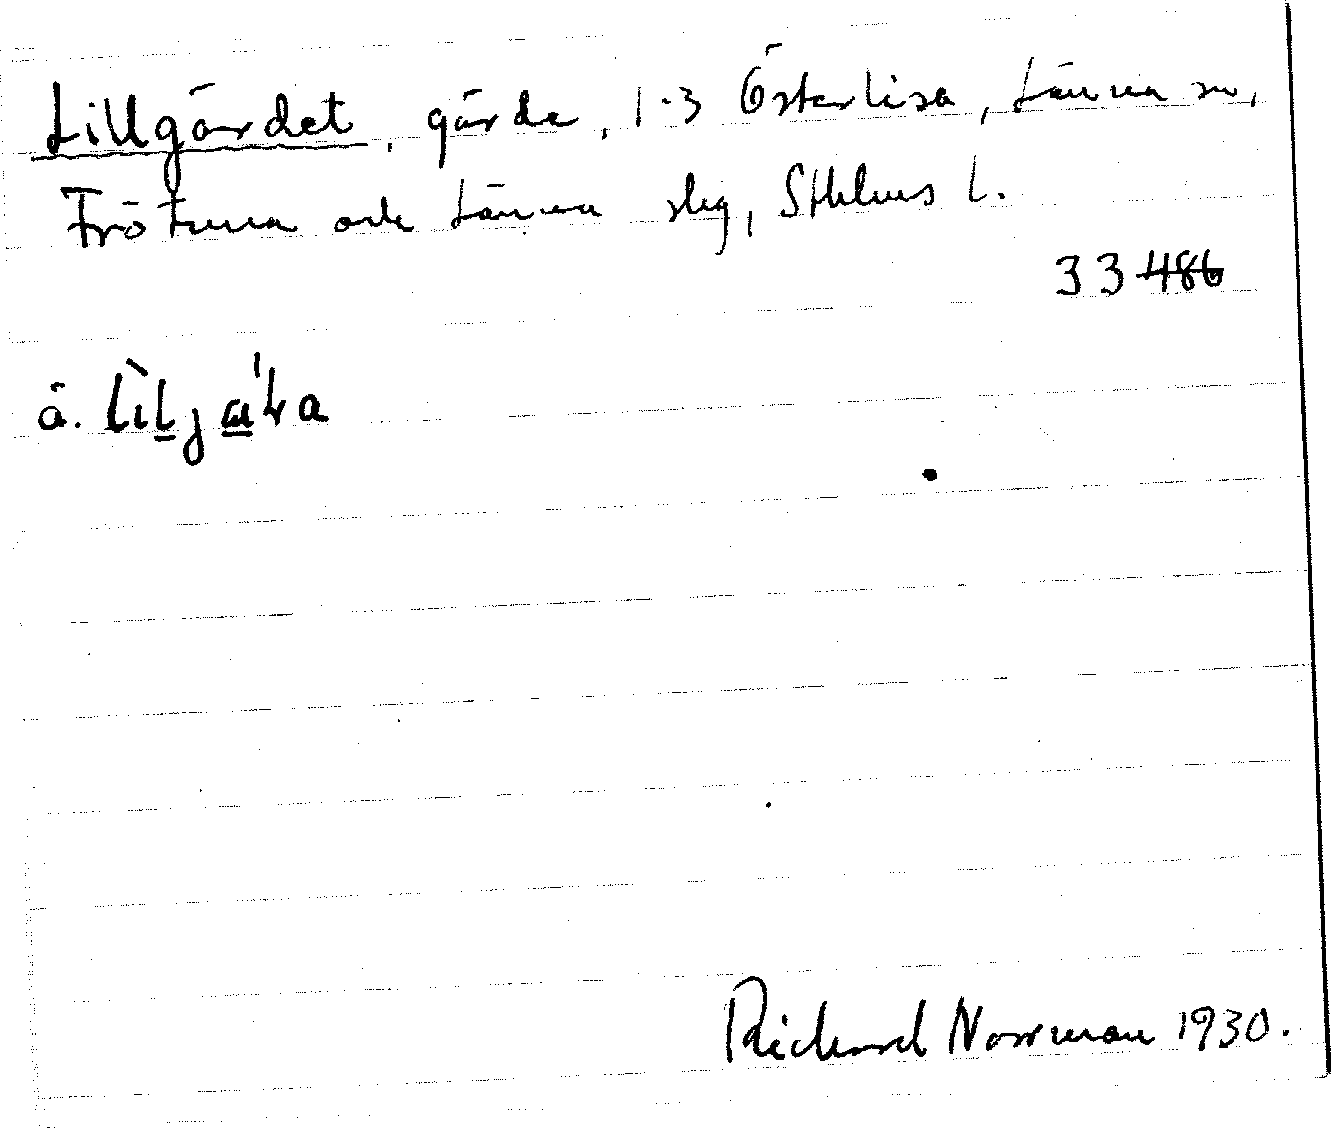 Lillgärdet, gärde, 1-3 Österlisa, Länna sn,
Frötuna och Länna slg, Sthlms l.
33 486
å.
Richard Norrman 1930.